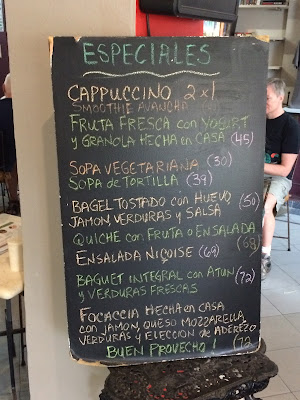 ESPECIALES
CAPPUCCINO 2x1
SMOOTHIE AVANCHA
FRUTA FRESCA con YOGURT
Y GRANOLA HECHA en CASA (45)
SOPA VEGETARIANA (30)
SOPA de TORTILLA (39)
BAGEL TOSTADO con HUEVO, (50)
JAMON, VERDURAS y SALSA
QUICHE con FRUTA o ENSALADA (68)
ENSALADA NIÇOISE (69)
BAGUET INTEGRAL con ATUN (72)
Y VERDURAS FRESCAS
FOCACCIA HECHA en CASA
con JAMON, QUESO MOZZARELLA,
VERDURAS y ELECCION de ADEREZO
BUEN PROVECHO! (72